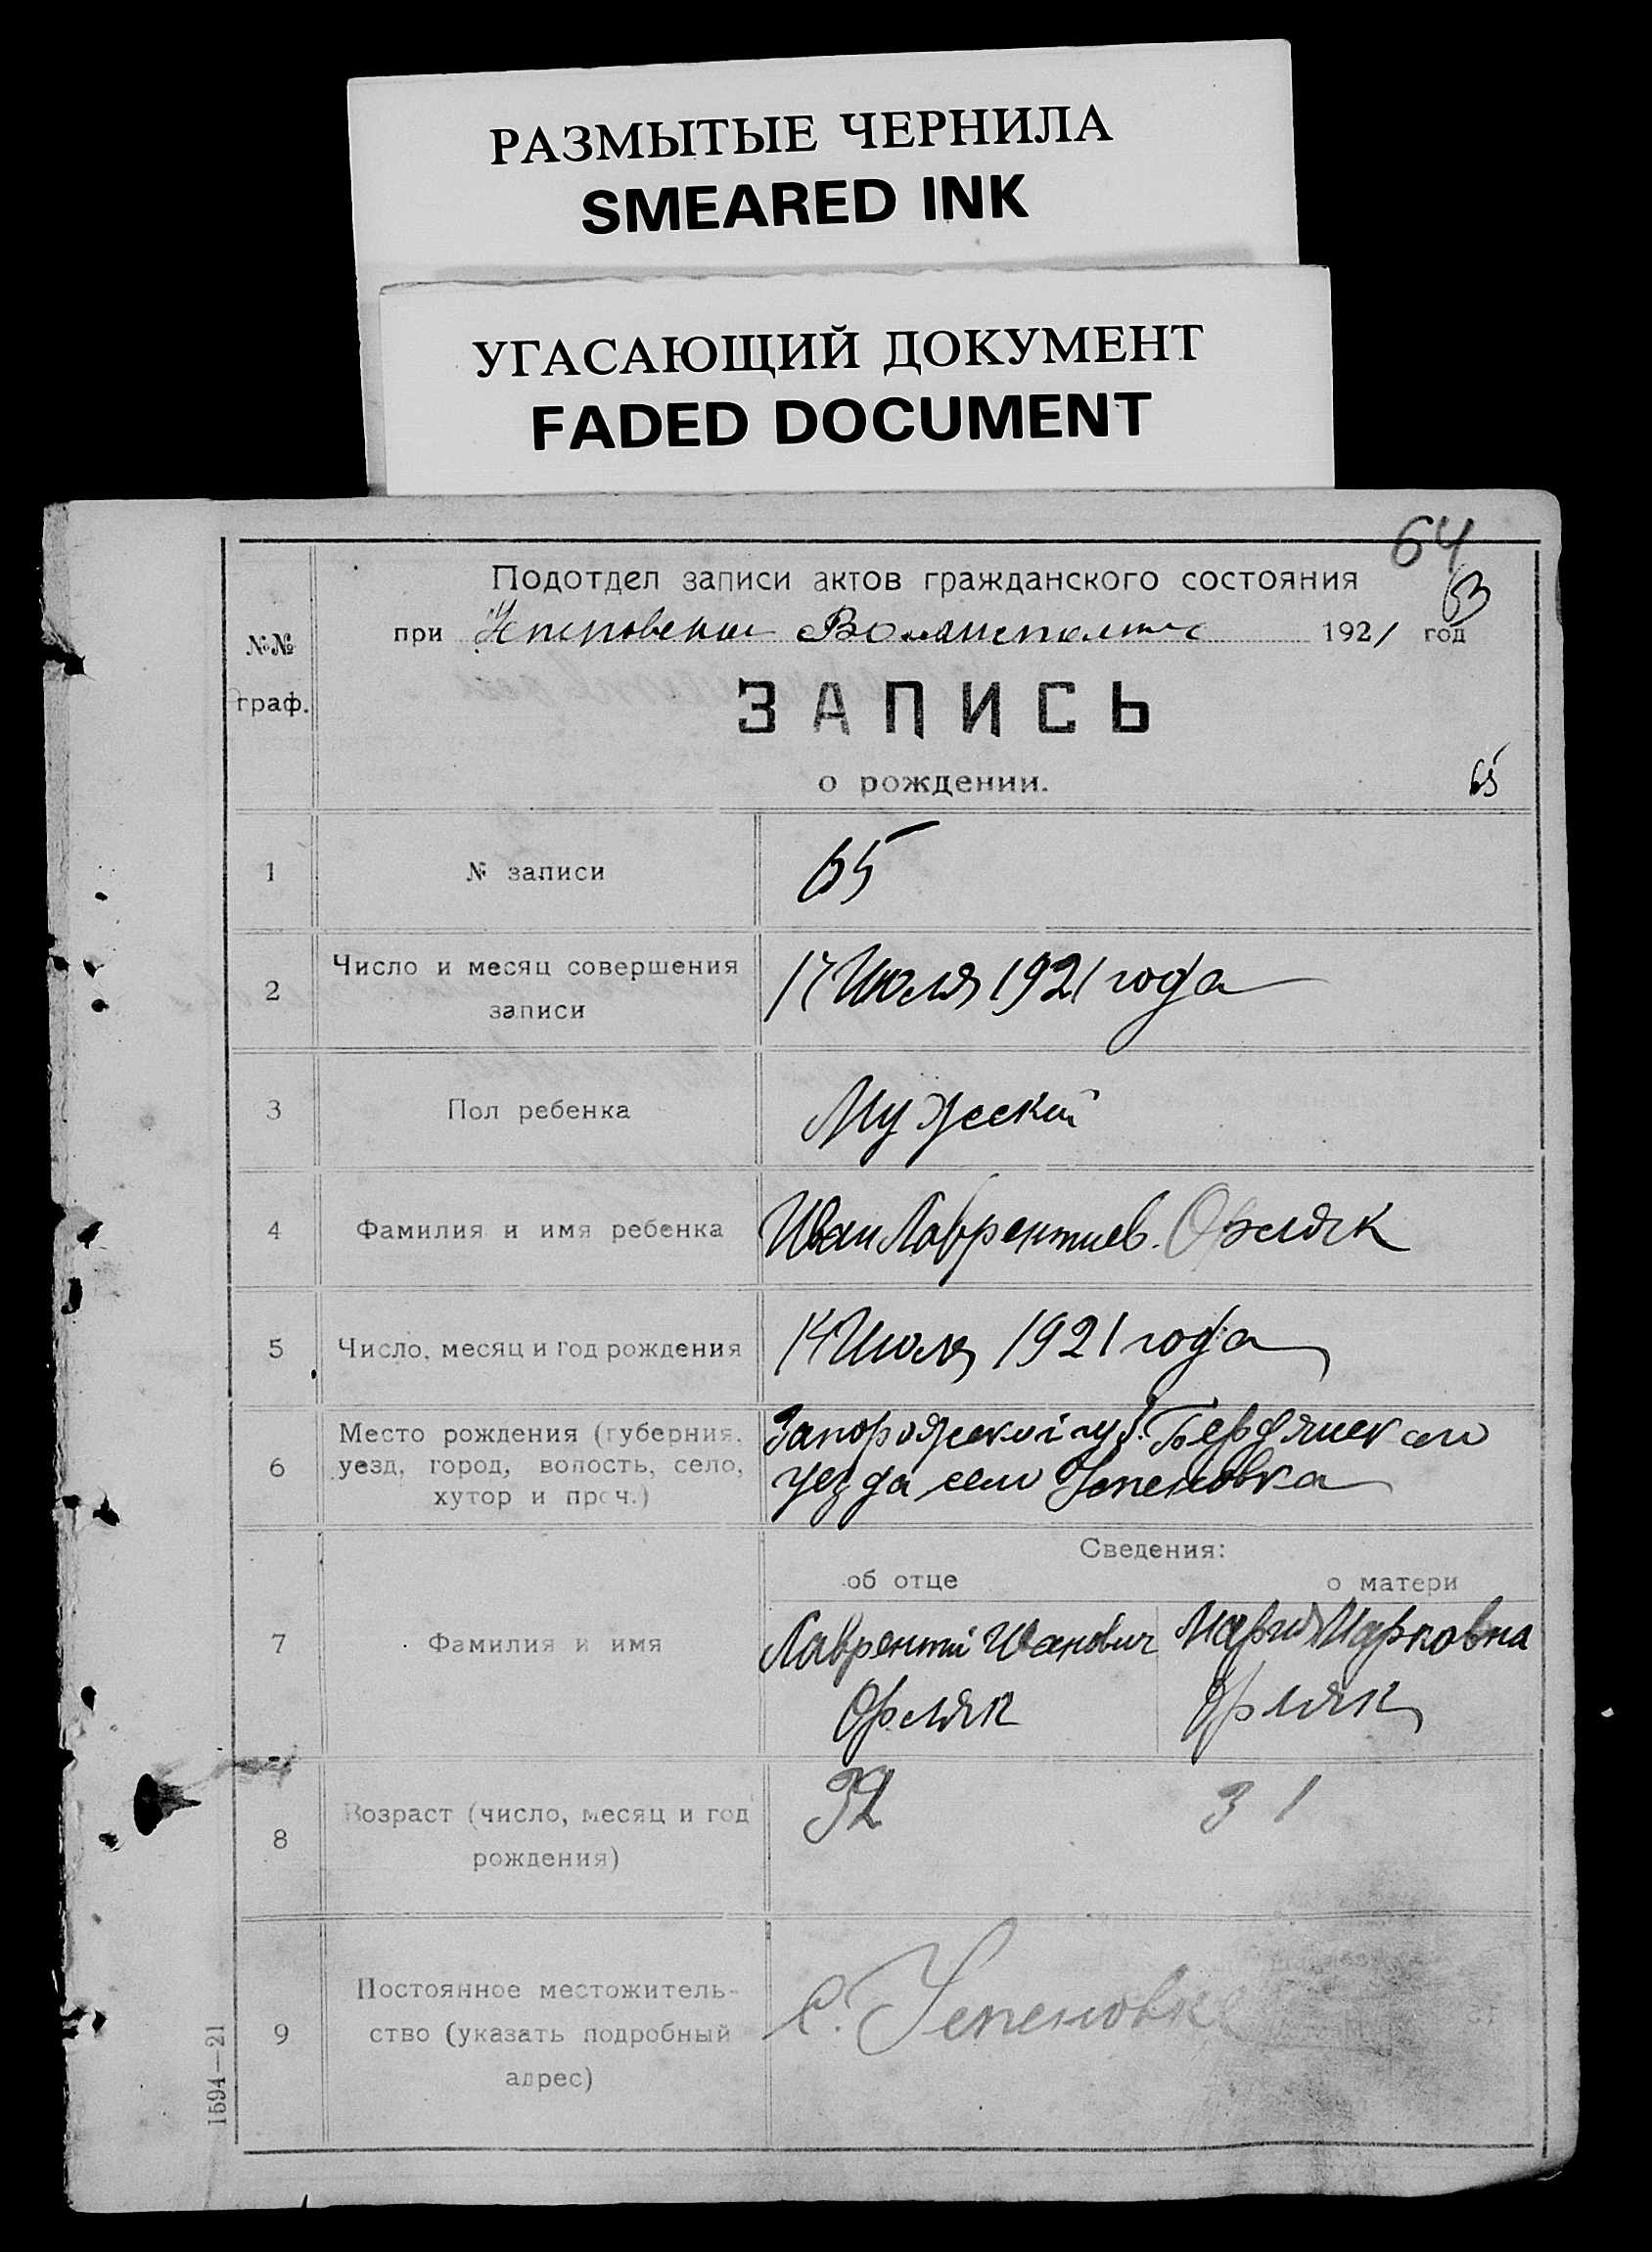 РАЗМЫТЫЕ ЧЕРНИЛА
SMEARED INK
УГАСАЮЩИЙ ДОКУМЕНТ
FADED DOCUMENT
64
63
Подотдел записи актов гражданского состояния
при 1921 год
№№
граф.
ЗАПИСЬ
о рождении.
65
1 № записи 65
2 Число и месяц совершения
записи
17 Июля 1921 года
3 Пол ребенка Мужской
4 Фамилия и имя ребенка Иван Лаврентиев. Орляк
5 Число, месяц и год рождения 14 Июля 1921 года
6 Место рождения (губерния,
уезд, город, волость, село,
хутор и проч.)
Запорожской губ. Бердянского
уезда село Успеновка
Сведения:
об отце о матери
7 Фамилия и имя
Лаврентий Иванович
Орляк
Мария Марковна
Орляк
8 Возраст (число, месяц и год
рождения)
32 31
9 Постоянное местожитель-
ство (указать подробный
адрес)
с. Успеновка
1594—21